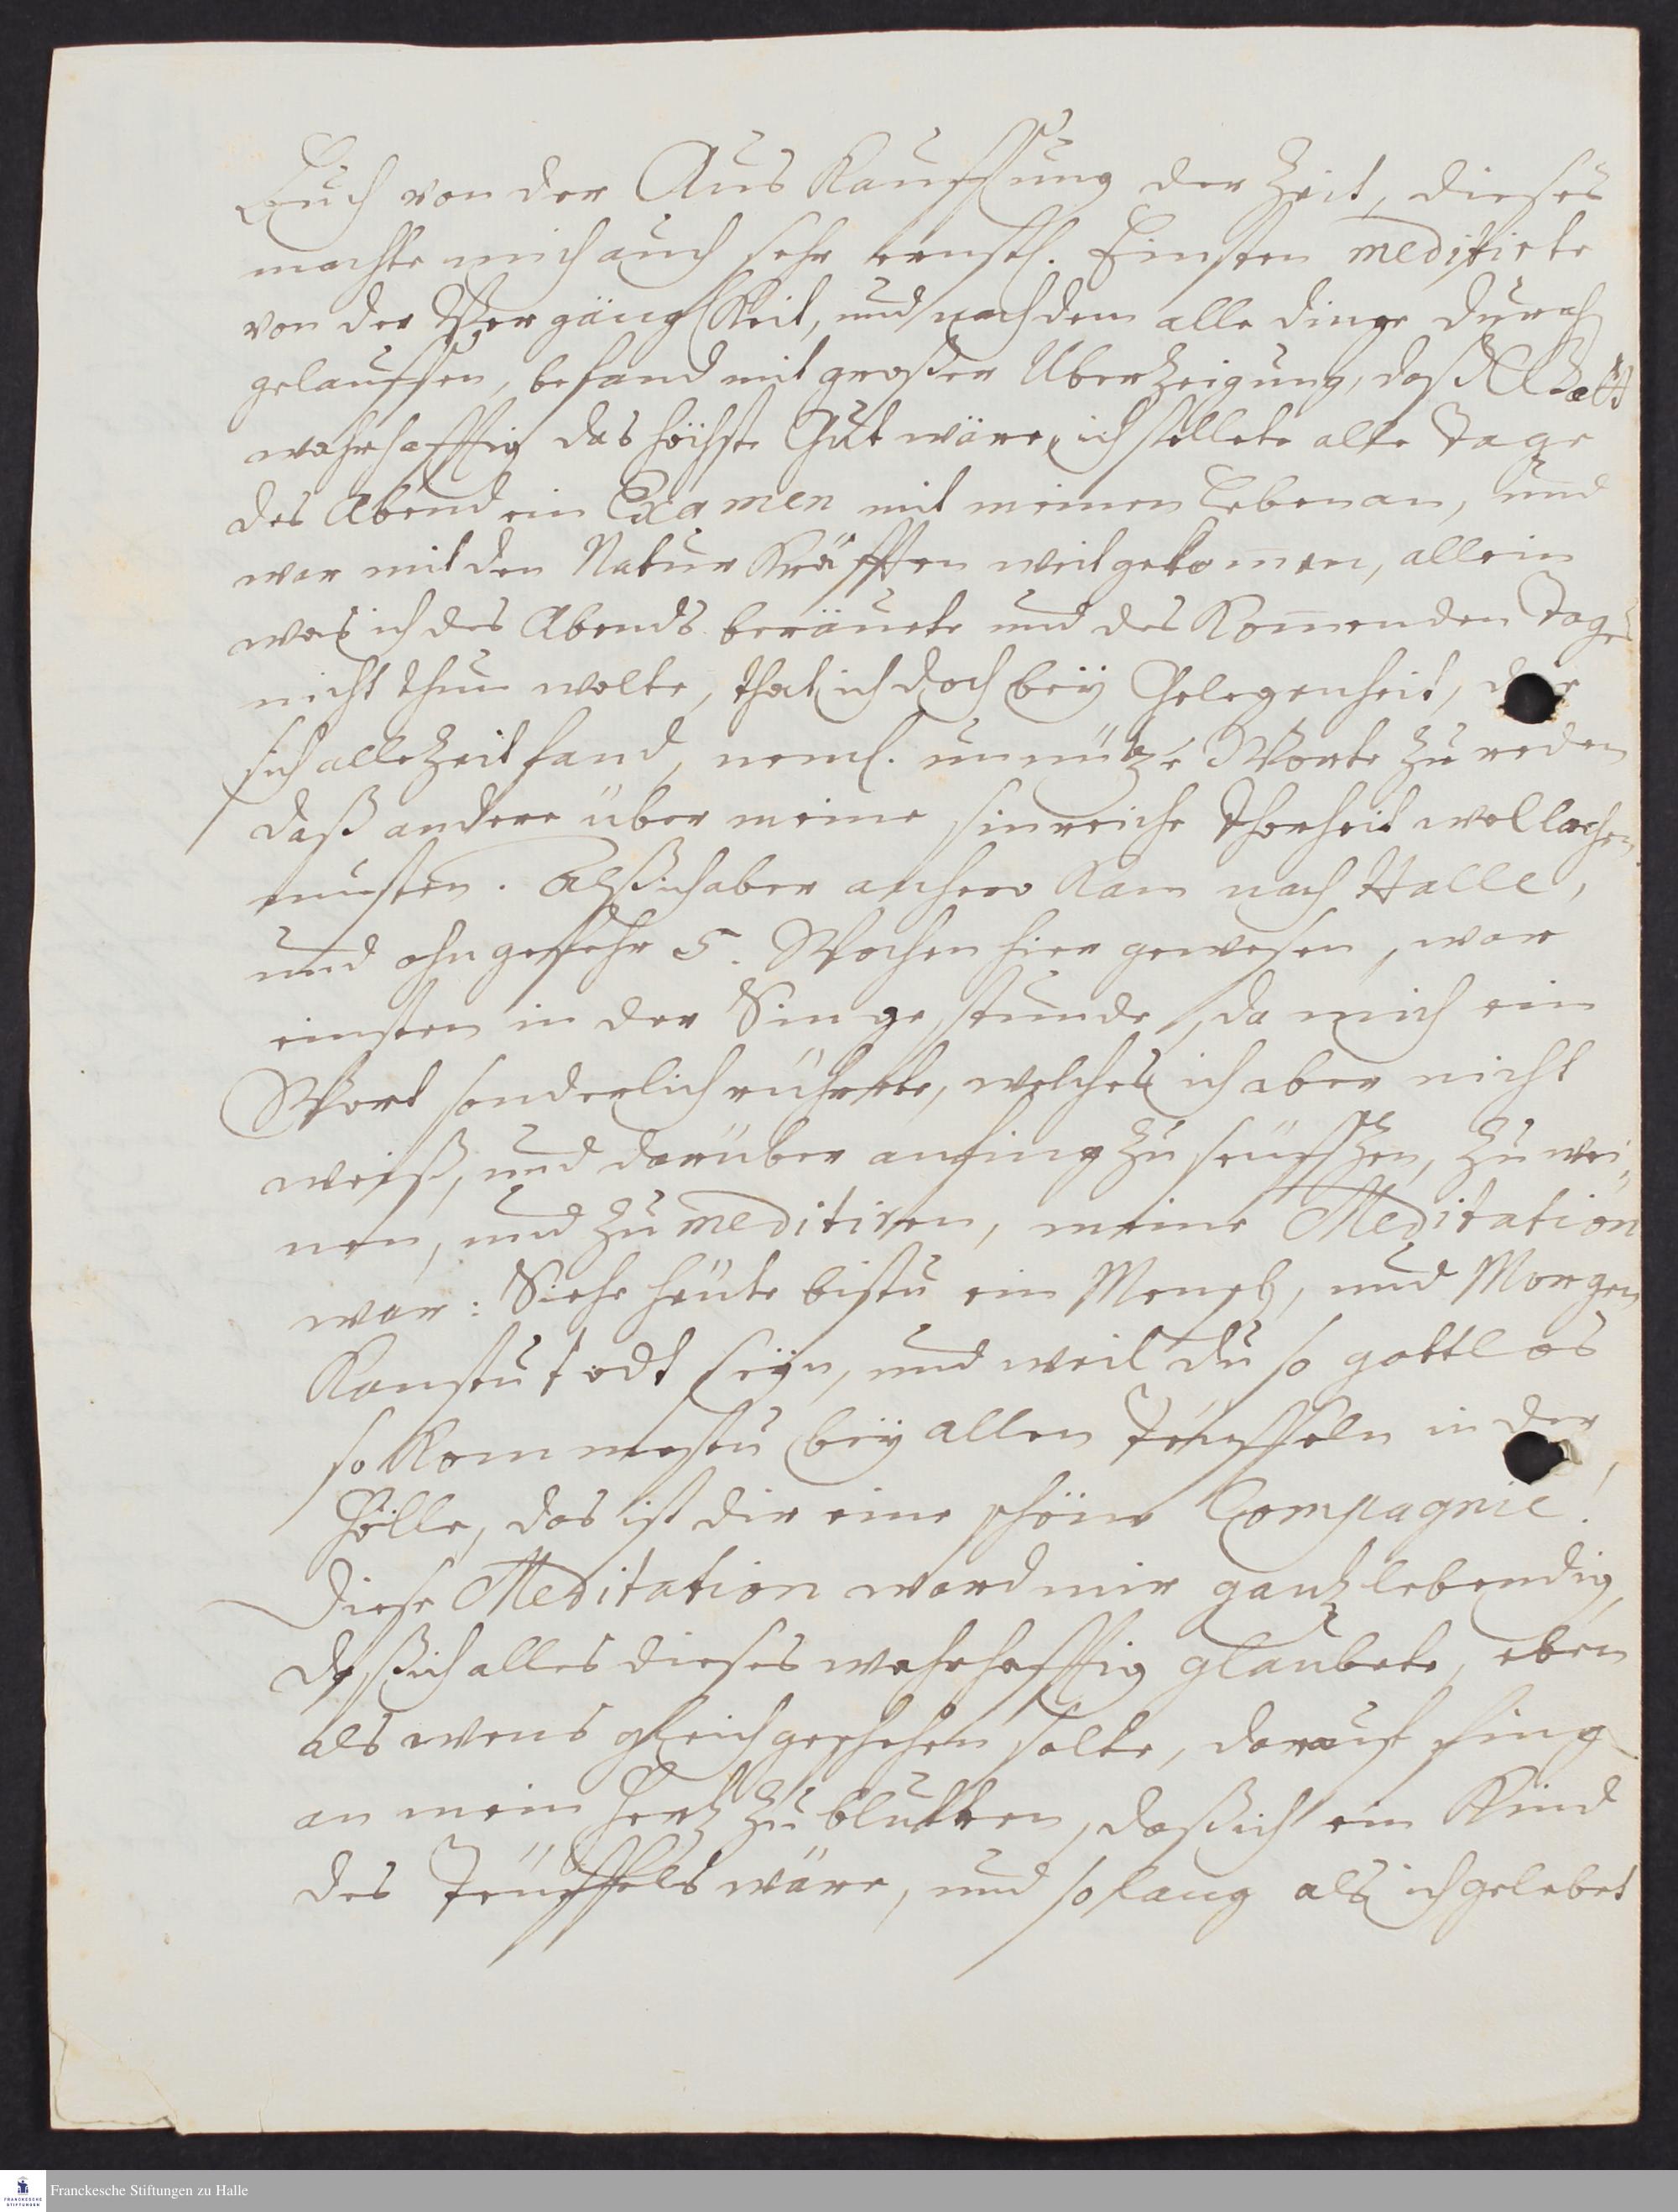 Buch von der Aus Kauffung der Zeit, dieses
machte mich auch sehr ernstl. Einsten meditirte
von der Vergänglkeit, und nachdem alle dinge durch
gelauffen, befand mit großer Uberzeigung, daß Gott
wahrhafftig das höchste Gut wäre, ich stellete alle Tage
des Abend ein Examen mit meinen Leben an, und
war mit den Natur Kräfften weit gekomen, allein
was ich des Abends beräuete und des Komenden Tages
nicht thun wolte, that ich doch beÿ Gelegenheit, der
sich alle Zeit fand, neml. unnütze Worte zu reden
daß andere über meine sinreiche Thorheit wol lachen
musten. Alß ich aber anhero Kam nach Halle,
und ohngefehr 5. Wochen hier gewesen, war
einsten in der Singe stunde, da mich ein
Wort sonderlich rührete, welches ich aber nicht
weiß, und darüber anfing zu seüfftzen, zu wei¬
nen, und zu meditiren, meine Meditation
war: Siehe heüte bistu ein Mensch, und Morgen
Kanstu todt seÿn, und weil du so gottlos
so Kommestu beÿ allen Teüffeln in der
Hölle, das ist dir eine schöne Compagnie!
Diese Meditation ward mir gantz lebendig,
daß ich alles dieses wahrhafftig glaubete, eben
als wens gleich geschehen solte, darauf fing
an mein Hertz zu blutten, daß ich ein Kind
des Teüffels wäre, und so lang als ich gelebet
Franckesche Stiftungen zu Halle